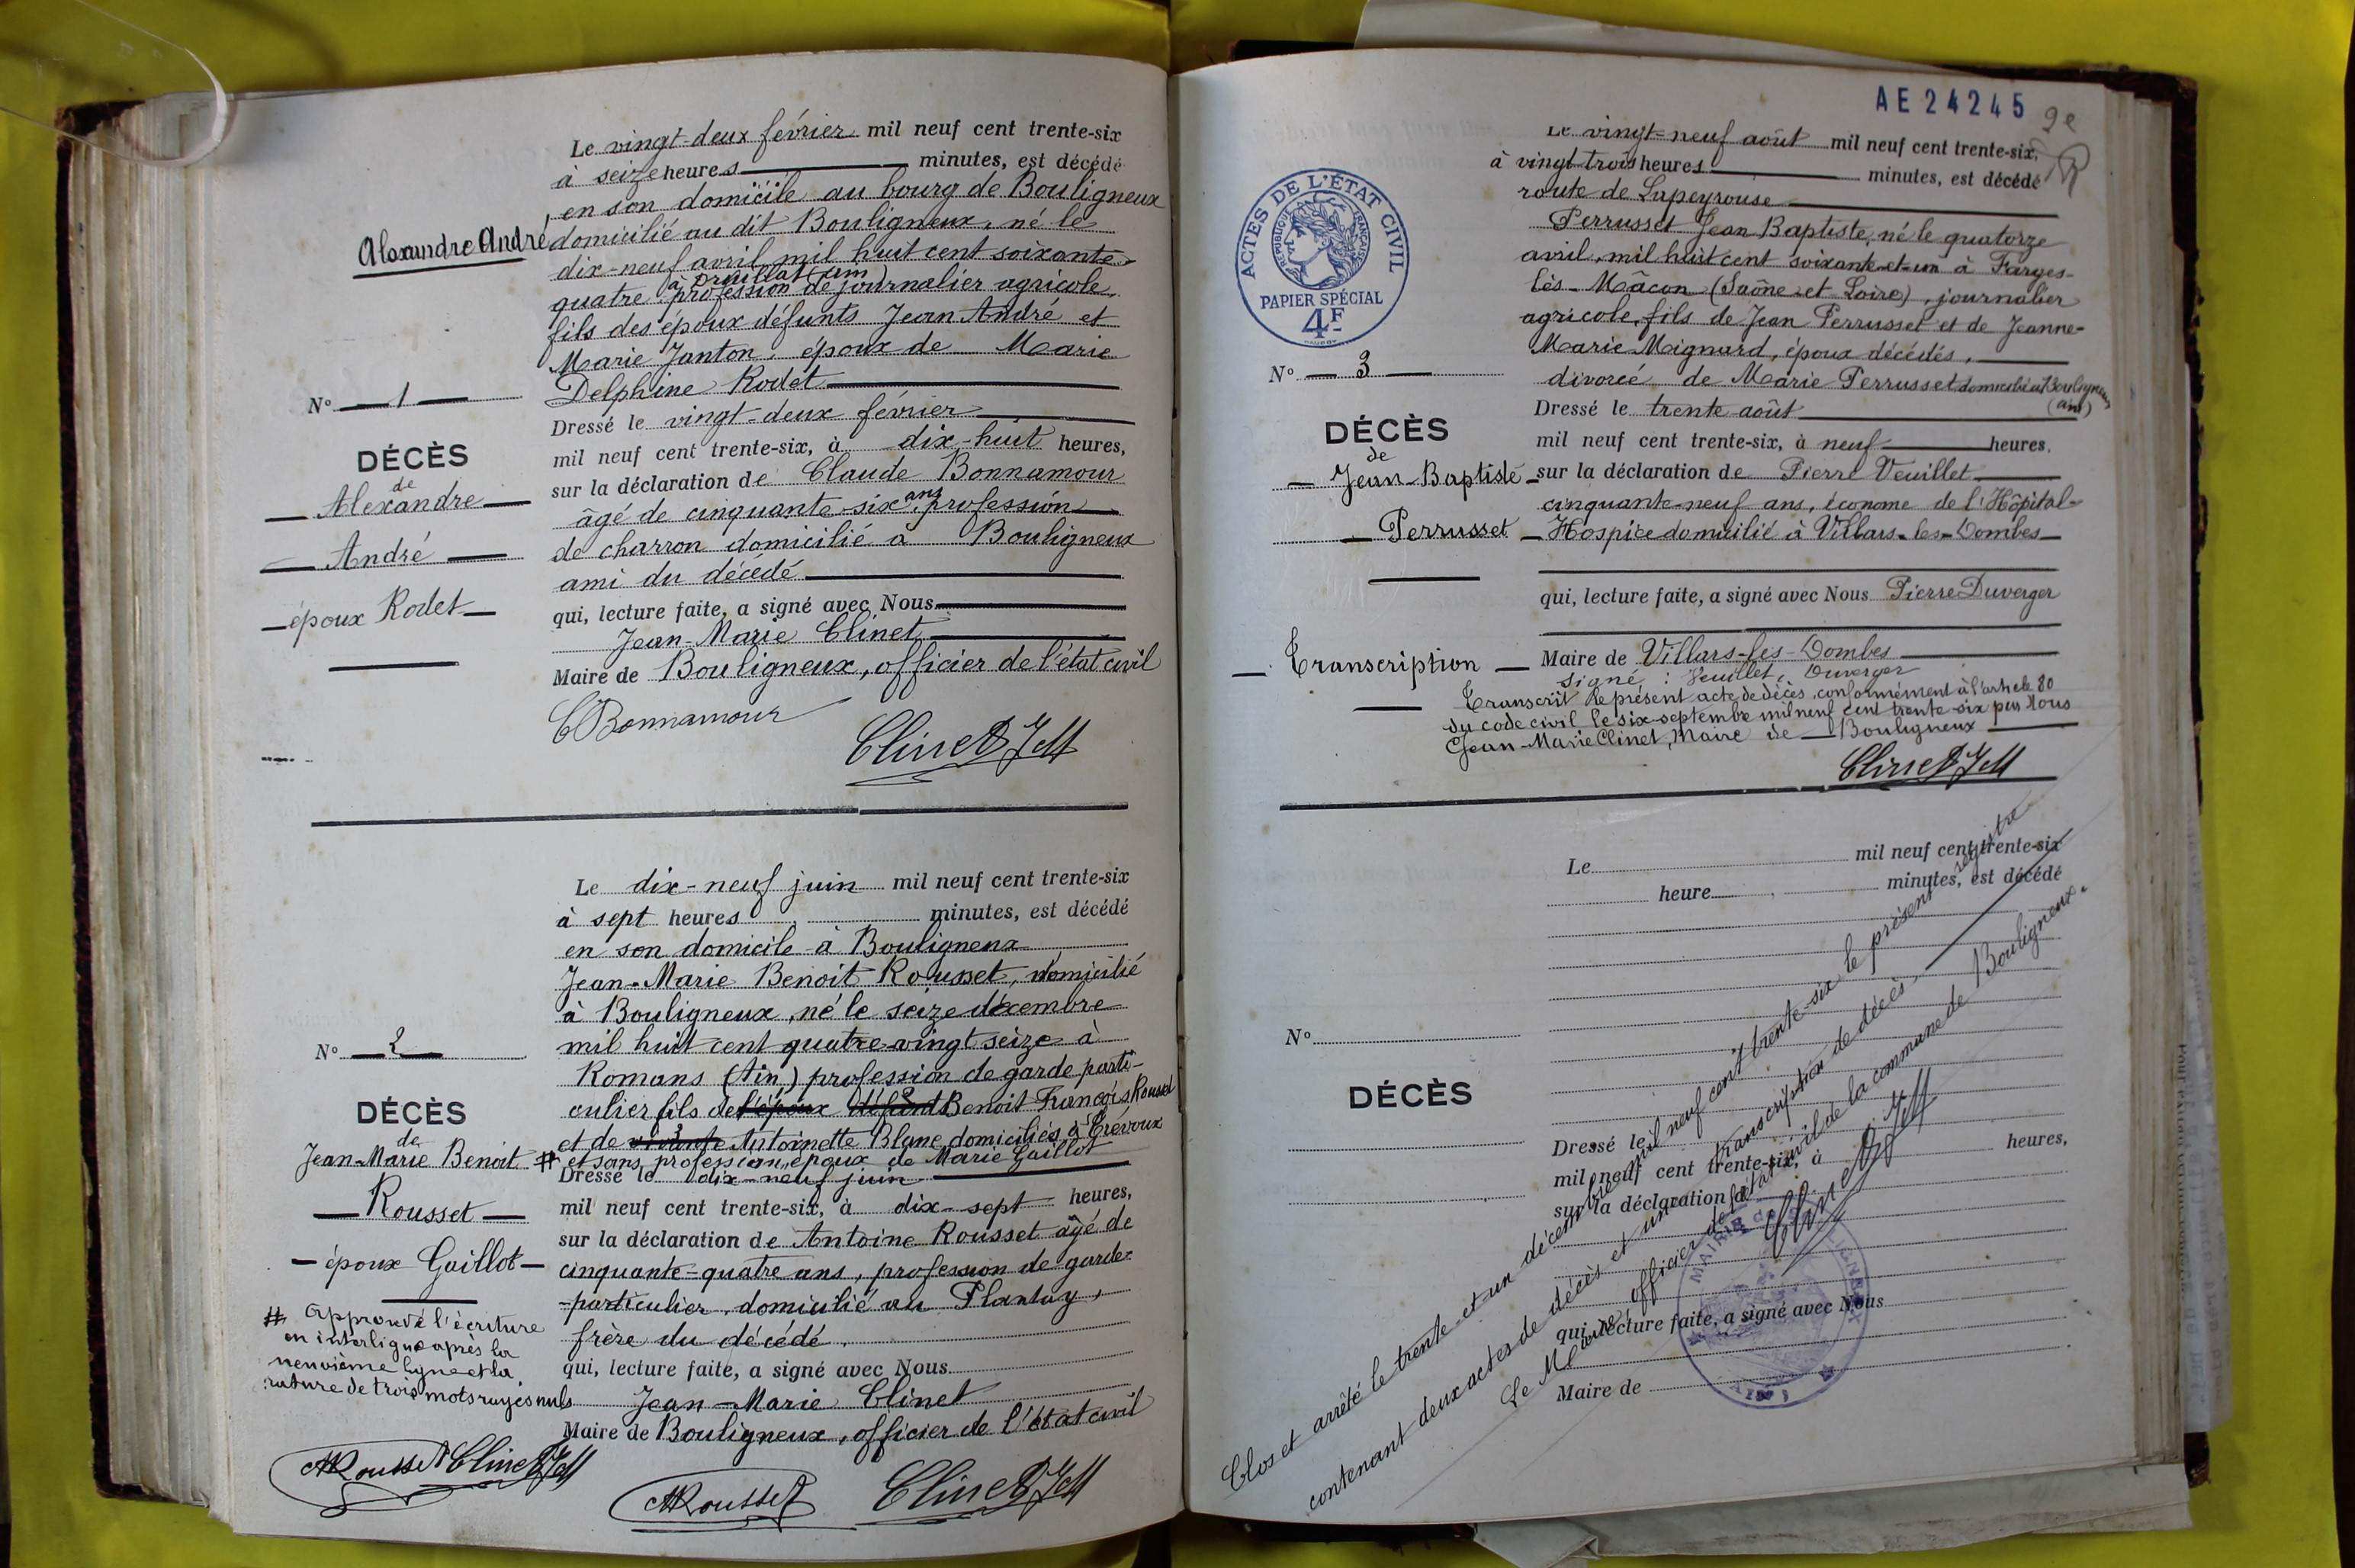 Le vingt-deux février mil neuf cent trente-six
à seize heures minutes, est décédé
en son domicile au bourg de Bouligneux
Alexandre André, domicilié au dit Bouligneux, né le
dix-neuf avril mil huit cent soixante
à Druillat (Ain)
quatre profession de journalier agricole,
fils des époux défunts Jean André et
Marie Janton, époux de Marie
Delphine Rodet
N° 1
Dressé le vingt-deux février
mil neuf cent trente-six, à dix-huit heures,
DÉCÈS
de
Alexandre
André
époux Rodet
sur la déclaration de Claude Bonnamour
âgé de cinquante-six ans profession
de charron domicilié à Bouligneux
ami du décédé
qui, lecture faite, a signé avec Nous
Jean-Marie Clinet
Maire de Bouligneux, officier de l'état civil
CBonnamour
Clinet JM
Le dix-neuf juin mil neuf cent trente-six
à sept heures, minutes, est décédé
en son domicile à Bouligneux
Jean-Marie Benoit Rousset, domicilié
à Bouligneux, né le seize décembre
mil huit cent quatre vingt seize à
Romans (Ain) profession de garde parti-
culier fils de l'époux défunt Benoit François Rousset
et de vivante Antoinette Blanc, domiciliés à Trévoux
# et sans profession, époux de Marie Gaillot
N° 2
DÉCÈS
de
Jean-Marie Benoit
Rousset
époux Gaillot
Dressé le dix-neuf juin
mil neuf cent trente-six, à dix-sept heures,
sur la déclaration de Antoine Rousset âgé de
cinquante-quatre ans, profession de garde-
-particulier, domicilié au Plantay,
frère du décédé.
qui, lecture faite, a signé avec Nous
Jean-Marie Clinet
Maire de Bouligneux, officier de l'état civil
# Approuvé l'écriture
en interligne après la
neuvième ligne et la
rature de trois mots rayés nuls
ARousset Clinet JM
ARousset Clinet JM
AE 24245
2e
ACTES DE L'ÉTAT CIVIL
RÉPUBLIQUE FRANÇAISE
PAPIER SPÉCIAL
4F
Le vingt-neuf août mil neuf cent trente-six,
à vingt-trois heures minutes, est décédé
route de Lapeyrouse
Perrusset Jean Baptiste, né le quatorze
avril mil huit cent soixante-et-un à Farges-
lès-Mâcon (Saône-et-Loire), journalier
agricole, fils de Jean Perrusset et de Jeanne-
Marie Mignard, époux décédés,
divorcé de Marie Perrusset domicilié à Bouligneux
(Ain)
N° 3
DÉCÈS
de
Jean-Baptiste
Perrusset
Transcription
Dressé le trente août
mil neuf cent trente-six, à neuf heures,
sur la déclaration de Pierre Veuillet
cinquante-neuf ans, économe de l'Hôpital-
Hospice domicilié à Villars-les-Dombes
qui, lecture faite, a signé avec Nous Pierre Duverger
Maire de Villars-les-Dombes
Signé : Veuillet, Duverger
Transcrit le présent acte de décès, conformément à l'article 80
du code civil le six septembre mil neuf cent trente-six par Nous
Jean-Marie Clinet, Maire de Bouligneux
Clinet JM
Le mil neuf cent trente-six
heure, minutes, est décédé
N°
DÉCÈS
Dressé le
mil neuf cent trente-six, à heures,
sur la déclaration de
qui, lecture faite, a signé avec Nous
Maire de
Clos et arrêté le trente-et-un décembre mil neuf cent trente-six le présent registre
contenant deux actes de décès et une transcription de décès
Le Maire, officier de l'état civil de la commune de Bouligneux.
Clinet JM
MAIRIE de BOULIGNEUX